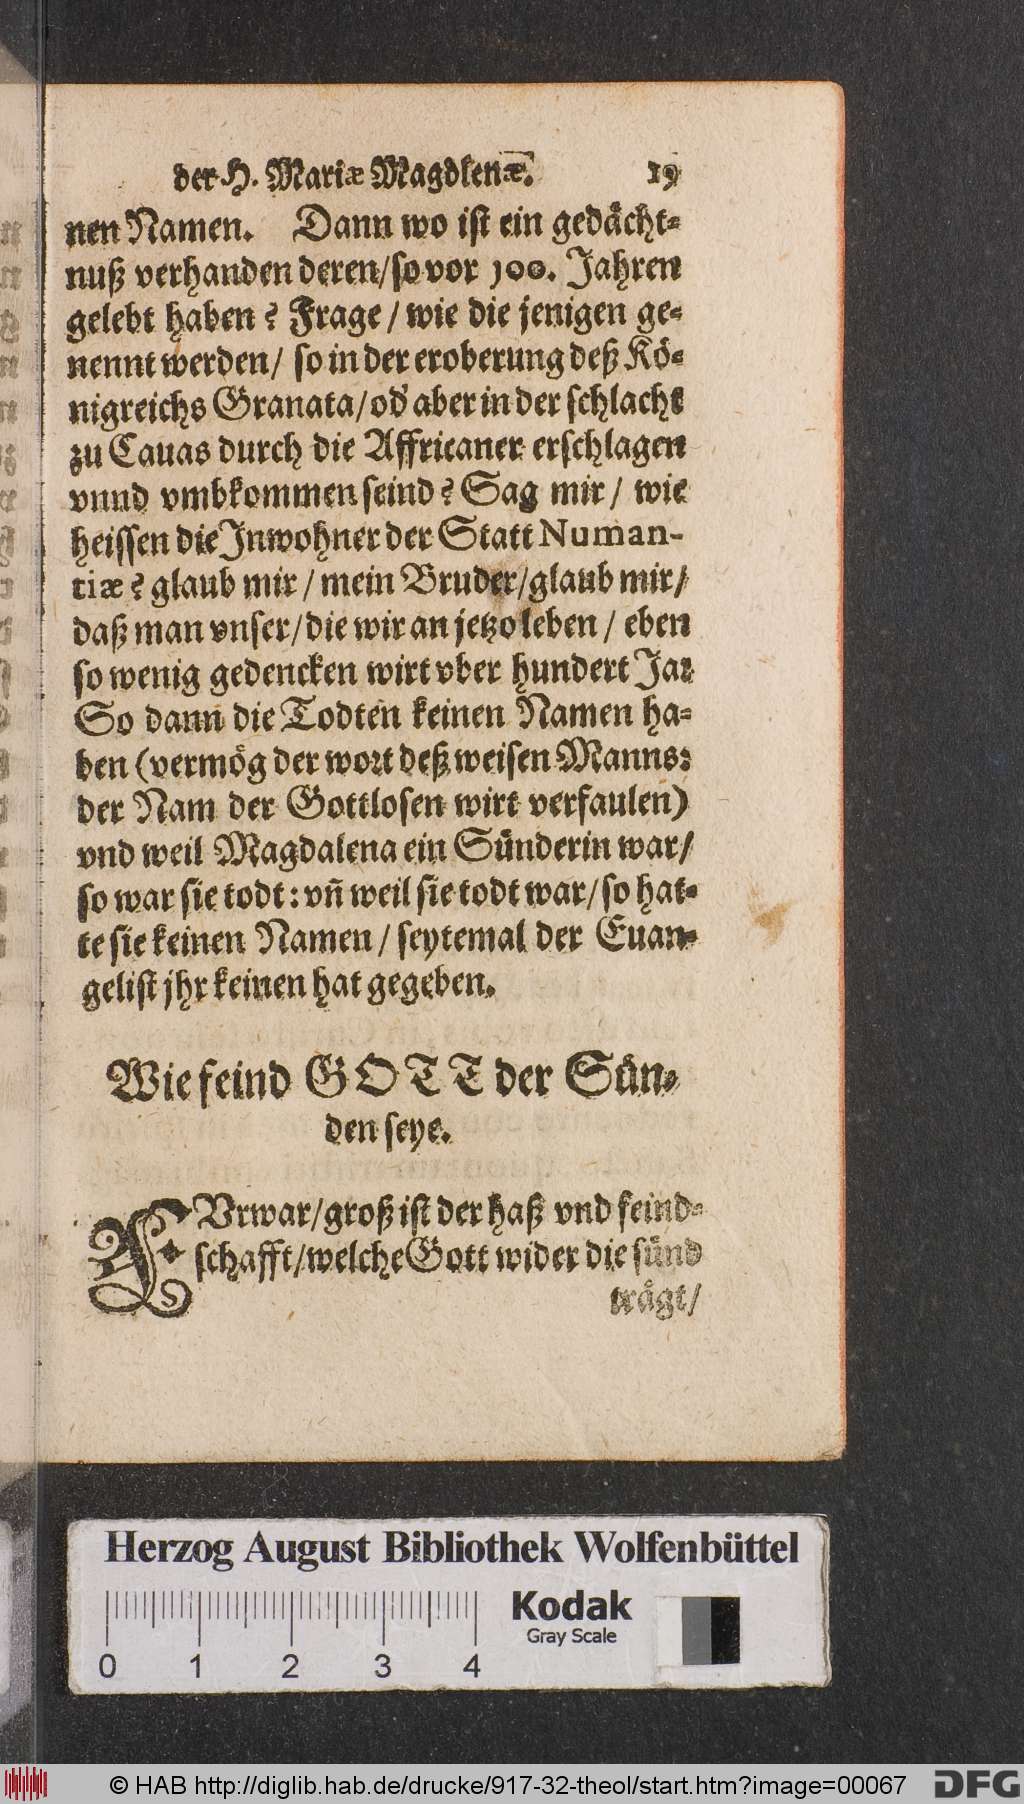 der H. Mariæ Magdlenæ. 19
nen Namen. Dann wo ist ein gedächt-
nuß verhanden deren/so vor 100. Jahren
gelebt haben? Frage / wie die jenigen ge-
nennt werden/ so in der eroberung deß Kö-
nigreichs Granata/od' aber in der schlacht
zu Cauas durch die Affricaner erschlagen
vnnd vmbkommen seind? Sag mir / wie
heissen die Inwohner der Statt Numan-
tiæ? glaub mir / mein Bruder/glaub mir/
daß man vnser/die wir an jetzo leben / eben
so wenig gedencken wirt vber hundert Jar
So dann die Todten keinen Namen ha-
ben (vermög der wort deß weisen Manns:
der Nam der Gottlosen wirt verfaulen)
vnd weil Magdalena ein Sünderin war/
so war sie todt: vñ weil sie todt war/so hat-
te sie keinen Namen / seytemal der Euan-
gelist jhr keinen hat gegeben.
Wie feind GOTT der Sün-
den seye.
FVrwar/groß ist der haß vnd feind-
schafft/welche Gott wider die sünd
trägt/
Herzog August Bibliothek Wolfenbüttel
Kodak
Gray Scale
0 1 2 3 4
© HAB http://diglib.hab.de/drucke/917-32-theol/start.htm?image=00067
DFG